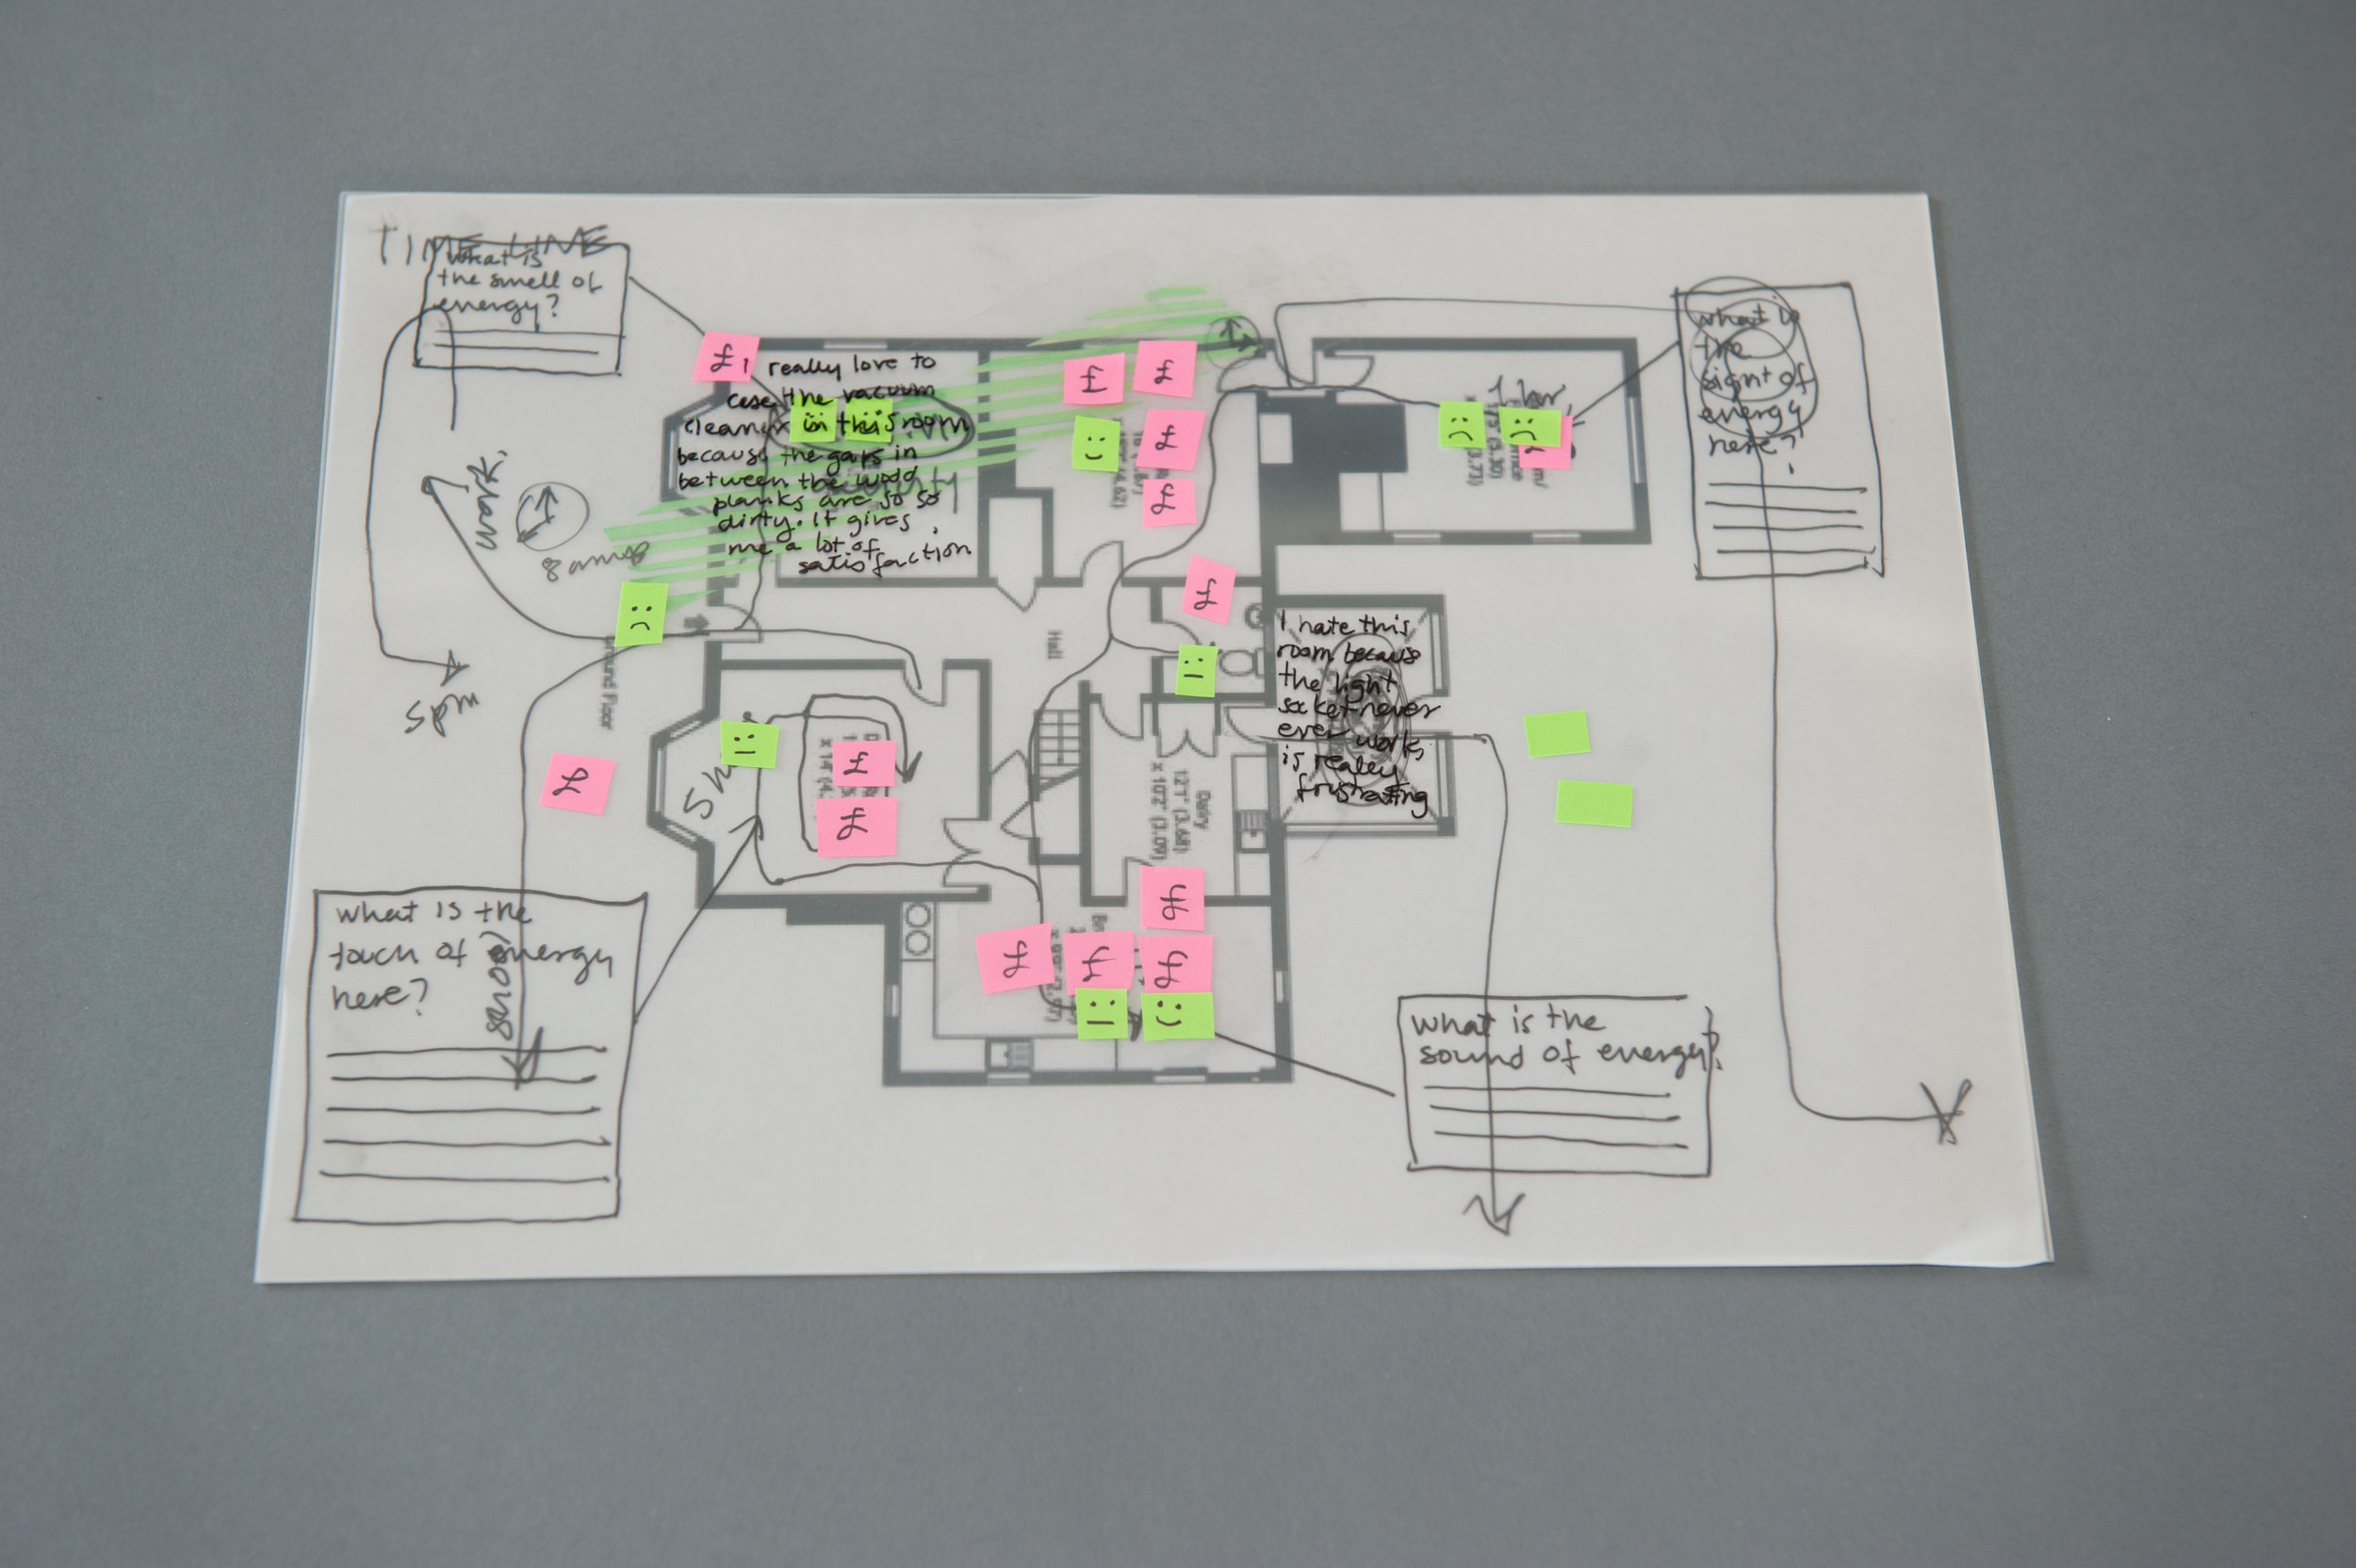 TIME LINE
what is
the smell of
energy?
£
I really love to
case the vacuum
cleaner in this room
because the gaps in
between the wood
planks are so so
dirty. It gives
me a lot of
satisfaction
£
£
£
£
1 hr
what is
the
sight of
energy
here?
work.
8am
5pm
£
Hall
Ground Floor
I hate this
room because
the light
socket never
ever work,
is really
frustrating
£
£
£
Dairy
12'1" (3.68)
x 10'2" (3.09)
what is the
touch of energy
here?
school
£
£
£
£
what is the
sound of energy?